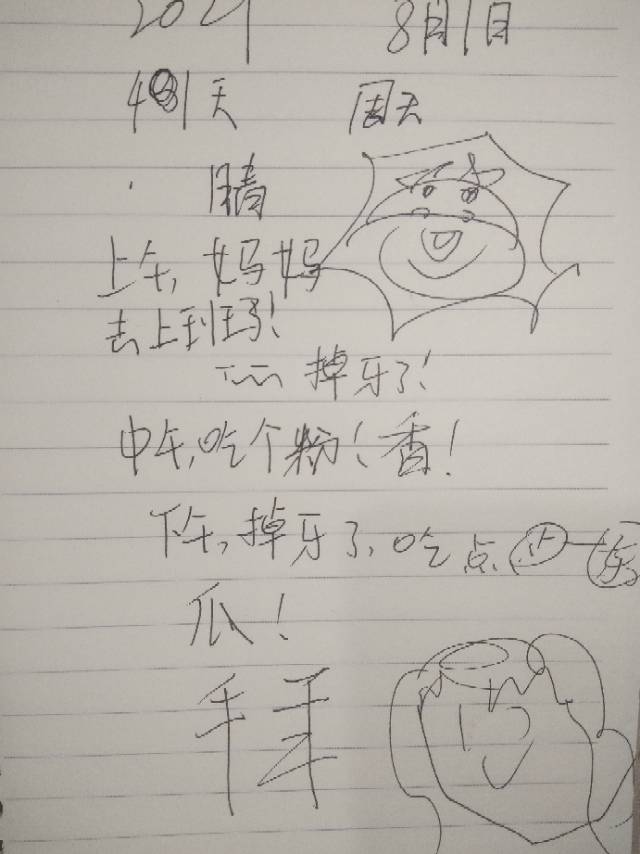 2021 8月1日
天 周天
晴
上午,妈妈
去上班了!
掉牙了!
中午,吃个粉!香!
下午,掉牙了,吃点
瓜!